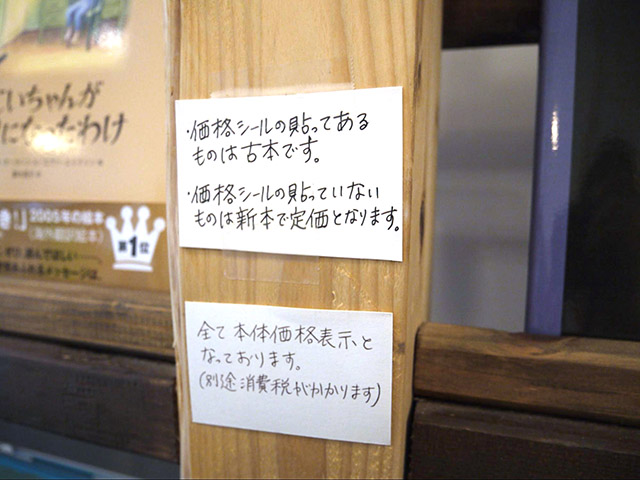 ・価格シールの貼ってある
ものは古本です。
・価格シールの貼っていない
ものは新本で定価となります。
全て本体価格表示と
なっております。
(別途消費税がかかります)
いちゃんが
になったわけ
2005年の絵本
(海外翻訳絵本)
第1位